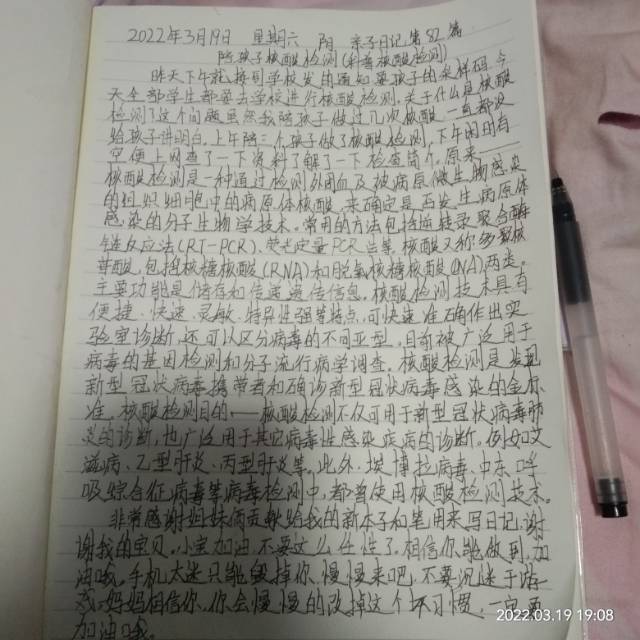 2022年3月19日 星期六 阴 亲子日记第52篇
陪孩子核酸检测(科普核酸检测)
昨天下午就接到学校发的通知要孩子的采样码今
天全部学生都要去学校进行核酸检测。关于什么是核酸
检测?这个问题虽然我陪孩子做过几次核酸一直都没
给孩子讲明白。上午陪二个孩子做了核酸检测,下午闲时有
空便上网查了一下资料了解了一下检查简介。原来——
核酸检测是一种通过检测外周血及被病原微生物感染
的组织细胞中的病原体核酸,来确定是否发生病原体
感染的分子生物学技术。常用的方法包括逆转录聚合酶
链反应法(RT-PCR)、荧光定量PCR法等,核酸又称多聚核
苷酸,包括核糖核酸(RNA)和脱氧核糖核酸(DNA)两类。
主要功能是储存和传递遗传信息。核酸检测技术具有
便捷、快速、灵敏、特异性强等特点,可快速准确作出实
验室诊断,还可以区分病毒的不同亚型,目前被广泛用于
病毒的基因检测和分子流行病学调查。核酸检测是发现
新型冠状病毒携带者和确诊新型冠状病毒感染的金标
准。核酸检测目的——核酸检测不仅可用于新型冠状病毒肺
炎的诊断,也广泛用于其它病毒性感染疾病的诊断。例如艾
滋病、乙型肝炎、丙型肝炎等,此外,埃博拉病毒、中东呼
吸综合征病毒等病毒检测中,都曾使用核酸检测技术。
非常感谢姐妹俩贡献给我的新本子和笔用来写日记,谢
谢我的宝贝。小宝加油不要这么任性了,相信你能做到,加
油哦。手机太迷只能缓掉你,慢慢来吧,不要沉迷于游
戏,妈妈相信你,你会慢慢的改掉这个不习惯,一定要
加油哦。
2022.03.19 19:08